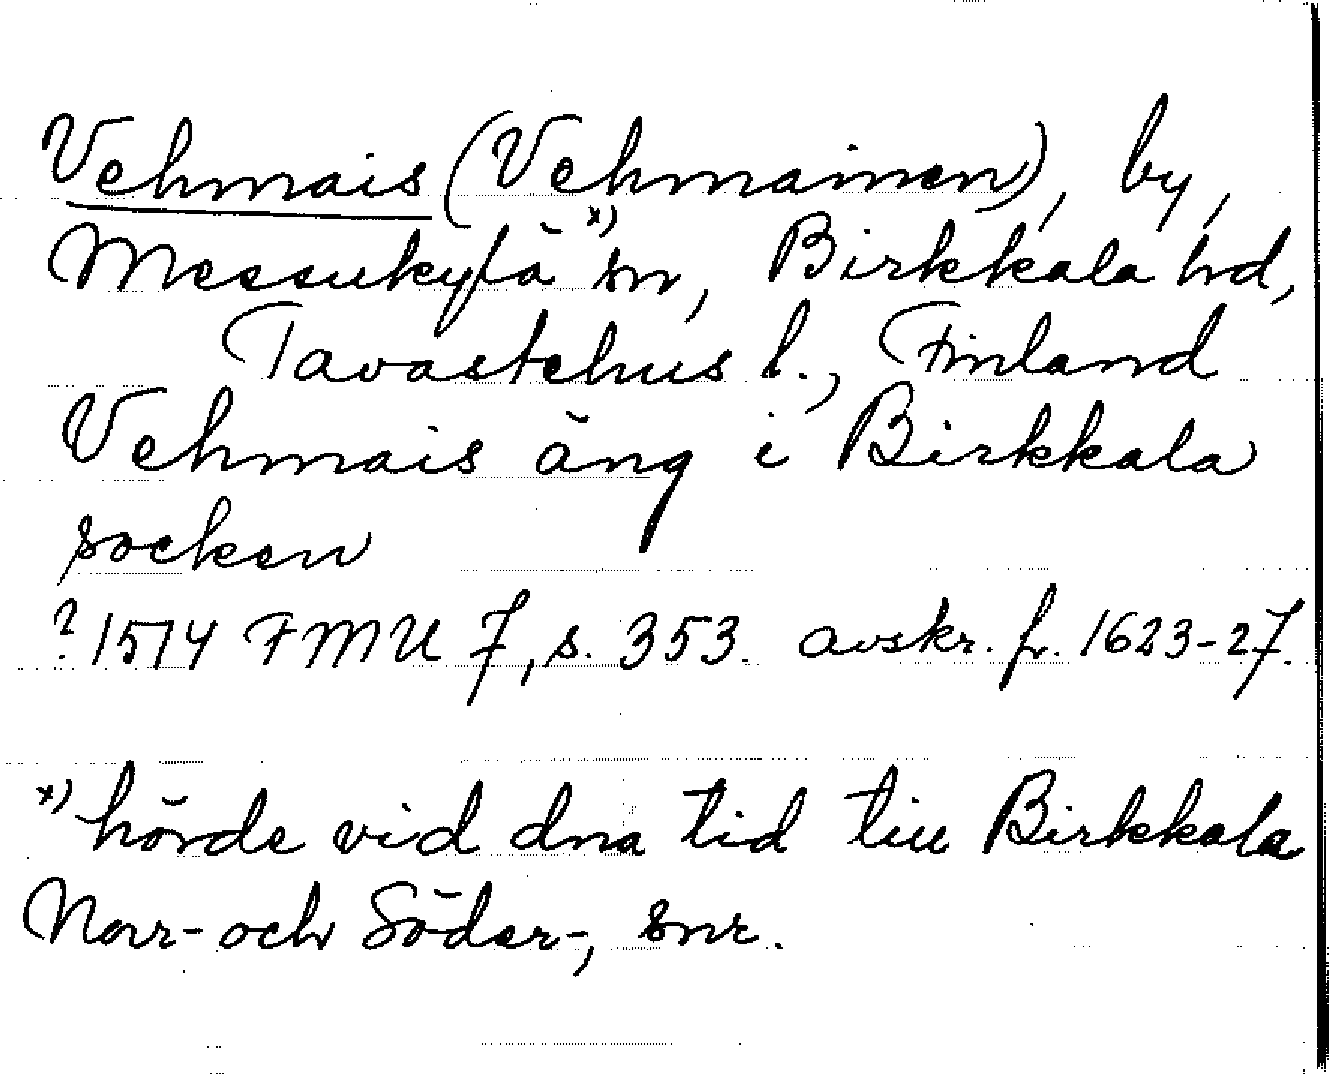 Vehmais (Vehmainen), by,
Messukylä x) sn, Birkkala hd,
Tavastehus l., Finland
Vehmais äng i Birkkala
socken
? 1514 FMU 7, s. 353. avskr. fr. 1623-27.
x) hörde vid dna tid till Birkkala
Norr- och Söder-, snr.